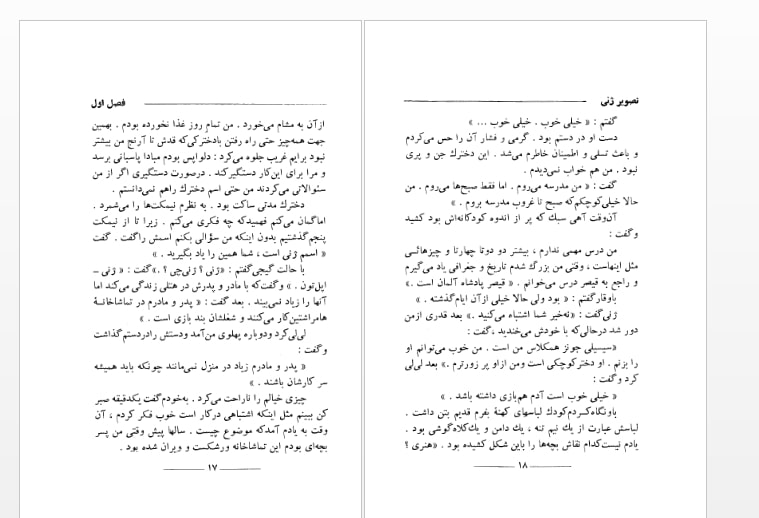 فصل اول
ازآن به مشام می‌خورد . من تمام روز غذا نخورده بودم . بهمین
جهت همه‌چیز حتی راه رفتن بادخترکی‌که قدش تا آرنج من بیشتر
نبود برایم غریب جلوه می‌کرد : دلواپس بودم مبادا پاسبانی برسد
و مرا برای این‌کار دستگیرکند . درصورت دستگیری اگر از من
سئوالاتی می‌کردند من حتی اسم دخترك راهم نمی‌دانستم .
دخترك مدتی ساکت بود . به نظرم نیمکت‌ها را می‌شمرد .
اماگمان می‌کنم فهمیدکه چه فکری می‌کنم . زیرا تا از نیمکت
پنجم‌گذشتیم بدون اینکه من سؤالی بکنم اسمش راگفت . گفت
« اسمم ژنی است ، شما همین را یاد بگیرید . »
با حالت گیجی‌گفتم : «ژنی ؟ ژنی‌چی ؟ .»گفت : « ژنی ـ
اپل‌تون . » وگفت‌که با مادر و پدرش در هتلی زندگی می‌کند اما
آنها را زیاد نمی‌بیند . بعد گفت : « پدر و مادرم در تماشاخانهٔ
هامراشتین‌کار می‌کنند و شغلشان بند بازی است . »
لی‌لی‌کرد ودوباره پهلوی من‌آمد ودستش رادردستم‌گذاشت
وگفت :
« پدر و مادرم زیاد در منزل نمی‌مانند چونکه باید همیشه
سر کارشان باشند . »
چیزی خیالم را ناراحت می‌کرد . به‌خودم‌گفت یکدقیقه صبر
کن ببینم مثل اینکه اشتباهی درکار است خوب فکر کردم ، آن
وقت به یادم آمدکه موضوع چیست . سالها پیش وقتی من پسر
بچه‌ای بودم این تماشاخانه ورشکست و ویران شده بود .
۱۷
تصویر ژنی
گفتم : « خیلی خوب . خیلی خوب ... »
دست او در دستم بود . گرمی و فشار آن را حس می‌کردم
و باعث تسلی و اطمینان خاطرم می‌شد . این دخترك جن و پری
نبود . من هم خواب نمی‌دیدم .
گفت : « من مدرسه می‌روم . اما فقط صبح‌ها می‌روم . من
حالا خیلی‌کوچکم‌که صبح تا غروب مدرسه بروم . »
آن‌وقت آهی سبك که پر از اندوه کودکانه‌اش بود کشید
وگفت :
من درس مهمی ندارم ، بیشتر دو دوتا چهارتا و چیزهائـی
مثل اینهاست ، وقتی من بزرگ شدم تاریخ و جغرافی یاد می‌گیرم
و راجع به قیصر درس می‌خوانم . « قیصر پادشاه آلمان است .»
باوقارگفتم : « بود ولی حالا خیلی ازآن ایام‌گذشته . »
ژنی‌گفت : «نه‌خیر شما اشتباه می‌کنید .» بعد قدری ازمن
دور شد درحالی‌که با خودش می‌خندید ،گفت :
«سیسیلی جونز همکلاس من است . من خوب می‌توانم او
را بزنم . او دخترکوچکی است ومن ازاو پر زورترم .» بعد لی‌لی
کرد وگفت :
« خیلی خوب است آدم هم‌بازی داشته باشد . »
باونگاه‌کردم‌کودك لباسهای کهنهٔ بفرم قدیم بتن داشت .
لباسش عبارت از یك نیم تنه ، یك دامن و یك‌کلاه‌گوشی بود .
یادم نیست‌کدام نقاش بچه‌ها را باین شکل کشیده بود . «هنری ؟
۱۸